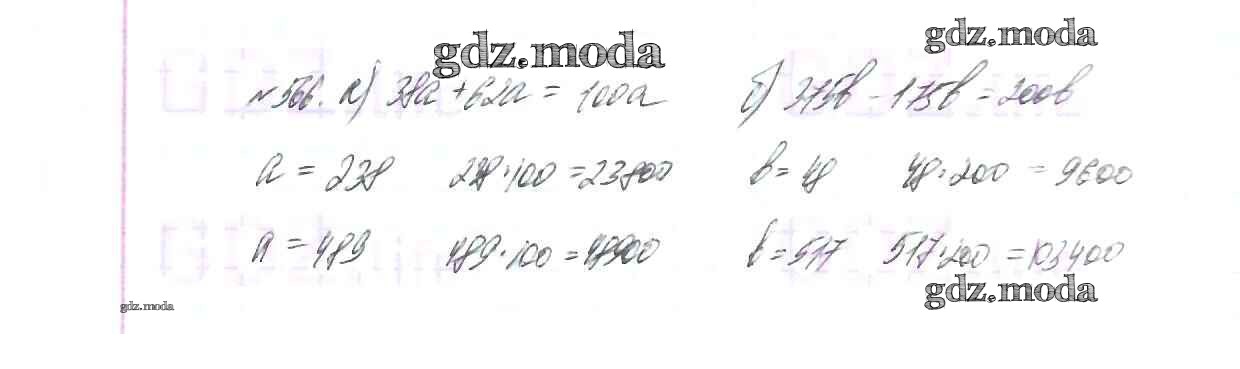 gdz.moda
gdz.moda
№566. а) 38a + 62a = 100a б) 375b - 175b = 200b
a = 238 238·100 = 23800 b = 48 48·200 = 9600
a = 489 489·100 = 48900 b = 517 517·200 = 103400
gdz.moda
gdz.moda